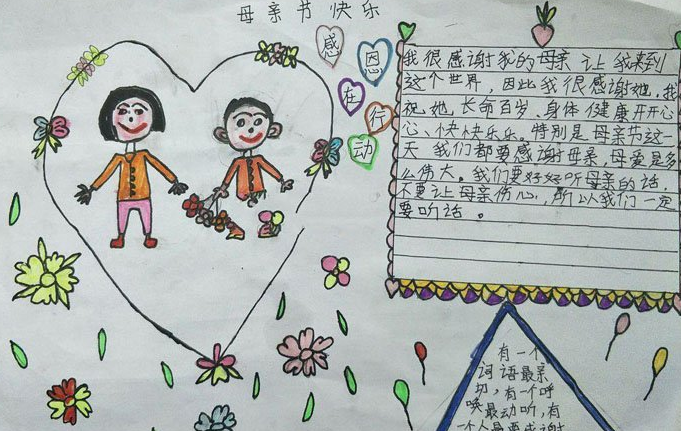 母亲节快乐
感
恩
在
行
动
我很感谢我的母亲让我来到
这个世界，因此我很感谢她，我
祝她长命百岁、身体健康开开心
心、快快乐乐。特别是母亲节这一
天我们都要感谢母亲，母爱是多
么伟大。我们要好好听母亲的话，
不要让母亲伤心，所以我们一定
要听话。
有一个
词语最亲
切，有一个呼
唤最动听，有
一个人最要感谢